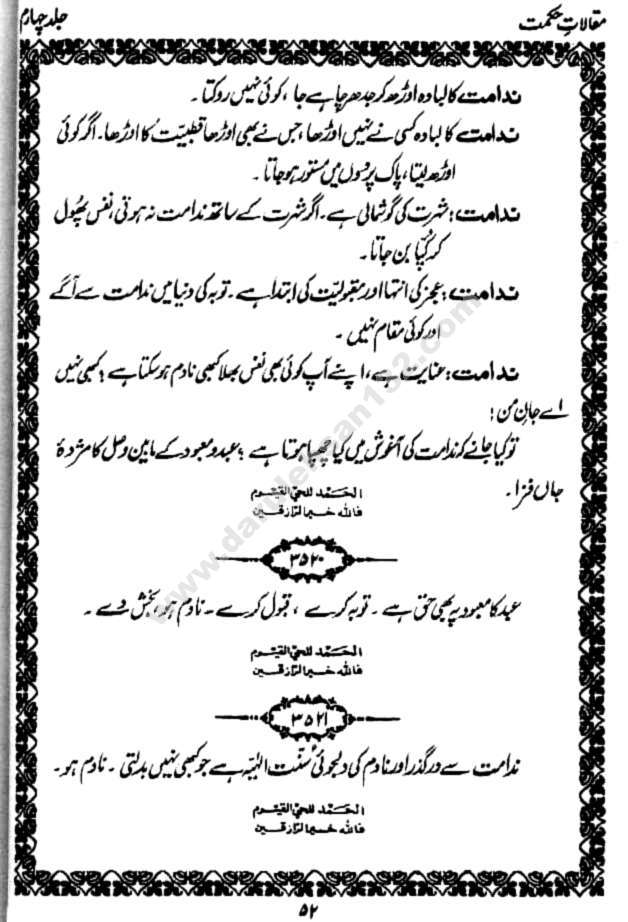 مقالاتِ حکمت
جلد چہارم
ندامت کا لبادہ اوڑھ کر جدھر چاہے جا ، کوئی نہیں روکتا ۔
ندامت کا لبادہ کسی نے نہیں اوڑھا ، جس نے بھی اوڑھا قطبیّت کا اوڑھا۔ اگر کوئی
اوڑھ لیتا ، پاک پردوں میں مستور ہو جاتا ۔
ندامت ؛ شہرت کی گوشمالی ہے ۔ اگر شہرت کے ساتھ ندامت نہ ہوتی ، نفس پھول
کر کُپّا بن جاتا ۔
ندامت ؛ عجز کی انتہا اور مقبولیت کی ابتدا ہے ۔ توبہ کی دنیا میں ندامت سے آگے
اور کوئی مقام نہیں ۔
ندامت ؛ عنایت ہے ، اپنے آپ کوئی بھی نفس بھلا کبھی نادم ہو سکتا ہے ؛ کبھی نہیں
اے جانِ من ؛
تو کیا جانے کہ ندامت کی آغوش میں کیا چھپا ہوتا ہے ؛ عبد و معبود کے مابین وصل کا مژدۂ
جاں فزا ۔
الحمد للحی القیوم
فاللہ خیر الرازقین
۳۵۲۰
عبد کا معبود پہ بھی حق ہے ۔ توبہ کرے ، قبول کرے ۔ نادم ہو ، بخش دے ۔
الحمد للحی القیوم
فاللہ خیر الرازقین
۳۵۲۱
ندامت سے درگذر اور نادم کی دلجوئی سُنّت الٰہیہ ہے جو کبھی نہیں بدلتی ۔ نادم ہو ۔
الحمد للحی القیوم
فاللہ خیر الرازقین
۵۲